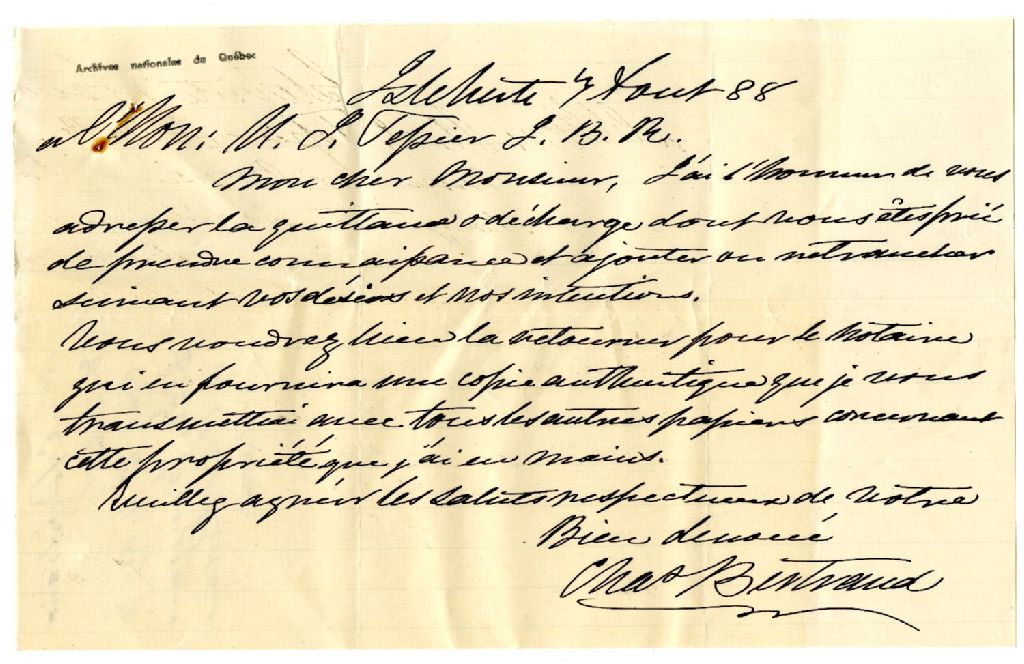 Archives nationales du Québec
Isle Verte 7 Aout 88
a l'Hon: U. J. Tessier J. B. R.
Mon cher Monsieur, J'ai l'honneur de vous
adresser la quittance & décharge dont vous êtes prié
de prendre connaissance et ajouter ou retrancher
suivant vos désirs et vos intentions.
Vous voudrez bien la retourner pour le Notaire
qui en fournira une copie authentique que je vous
transmettrai avec tous les autres papiers concernant
cette propriété que j'ai en mains.
Veuillez agréer les saluts respectueux de votre
Bien dévoué
Chas Bertrand